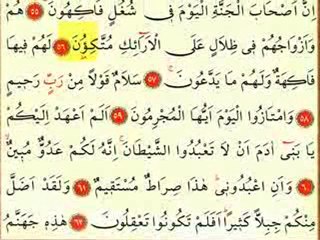 اِنَّ اَصْحَابَ الْجَنَّةِ الْيَوْمَ فٖى شُغُلٍ فَاكِهُونَ ﴿٥٥﴾ هُمْ
وَاَزْوَاجُهُمْ فٖى ظِلَالٍ عَلَى الْاَرَائِكِ مُتَّكِؤُنَ ﴿٥٦﴾ لَهُمْ فٖيهَا
فَاكِهَةٌ وَلَهُمْ مَا يَدَّعُونَ ﴿٥٧﴾ سَلَامٌ قَوْلًا مِنْ رَبٍّ رَحٖيمٍ
﴿٥٨﴾ وَامْتَازُوا الْيَوْمَ اَيُّهَا الْمُجْرِمُونَ ﴿٥٩﴾ اَلَمْ اَعْهَدْ اِلَيْكُمْ
يَا بَنٖى اٰدَمَ اَنْ لَا تَعْبُدُوا الشَّيْطَانَ اِنَّهُ لَكُمْ عَدُوٌّ مُبٖينٌ
﴿٦٠﴾ وَاَنِ اعْبُدُونٖى هٰذَا صِرَاطٌ مُسْتَقٖيمٌ ﴿٦١﴾ وَلَقَدْ اَضَلَّ
مِنْكُمْ جِبِلًّا كَثٖيرًا اَفَلَمْ تَكُونُوا تَعْقِلُونَ ﴿٦٢﴾ هٰذِهٖ جَهَنَّمُ